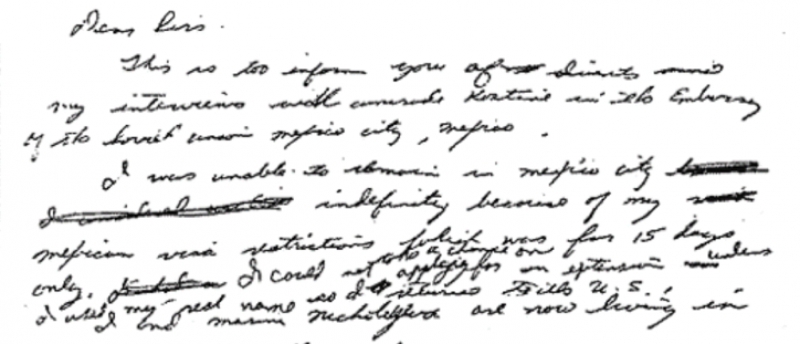 Dear Sirs.
This is too inform you of events since
my interviews with comrade Kostine in the Embassy
of the Soviet Union Mexico City, Mexico.
I was unable to remain in Mexico City
indefinitly because of my
Mexican visa restrictions which was for 15 days
only. I could not take a chance on applying for an extension unless
I used my real name so I returned to the U.S.
I and Marina Nicholeyeva are now living in